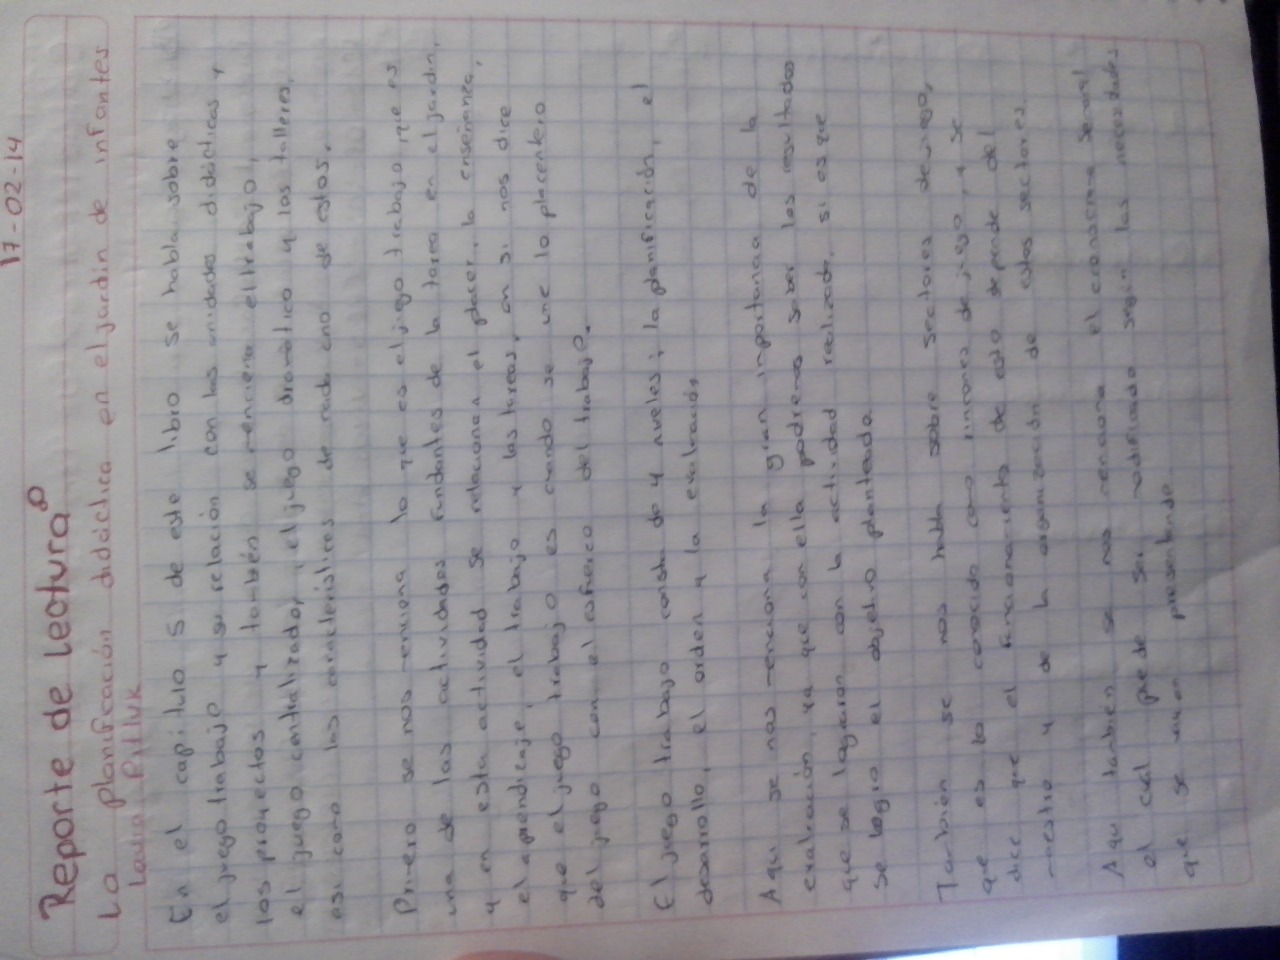 17-02-14
Reporte de lectura
La planificación didáctica en el jardín de infantes
Laura Pitluk
En el capítulo 5 de este libro se habla sobre
el juego trabajo y su relación con las unidades didácticas y
los proyectos y también se menciona el trabajo,
el juego centralizador, el juego dramático y los talleres,
asi como las características de cada uno de estos.
Primero se nos menciona lo que es el juego trabajo, que es
una de las actividades fundantes de la tarea en el jardín,
y en esta actividad se relacionan el placer, la enseñanza,
el aprendizaje, el trabajo y las tareas, en si nos dice
que el juego trabajo es cuando se une lo placentero
del juego con el esfuerzo del trabajo.
El juego trabajo consta de 4 niveles; la planificación, el
desarrollo, el orden y la evaluación,
Aqui se nos menciona la gran importancia de la
evaluación, ya que con ella podremos saber los resultados
que se lograron con la actividad realizada, si es que
se logro el objetivo planteado.
También se nos habla sobre sectores de juego,
que es lo conocido como rincones de juego, y se
dice que el funcionamiento de esto depende del
maestro y de la organización de estos sectores.
Aqui también se nos menciona el cronograma semanal
el cual puede ser modificado según las necesidades
que se vayan presentando.